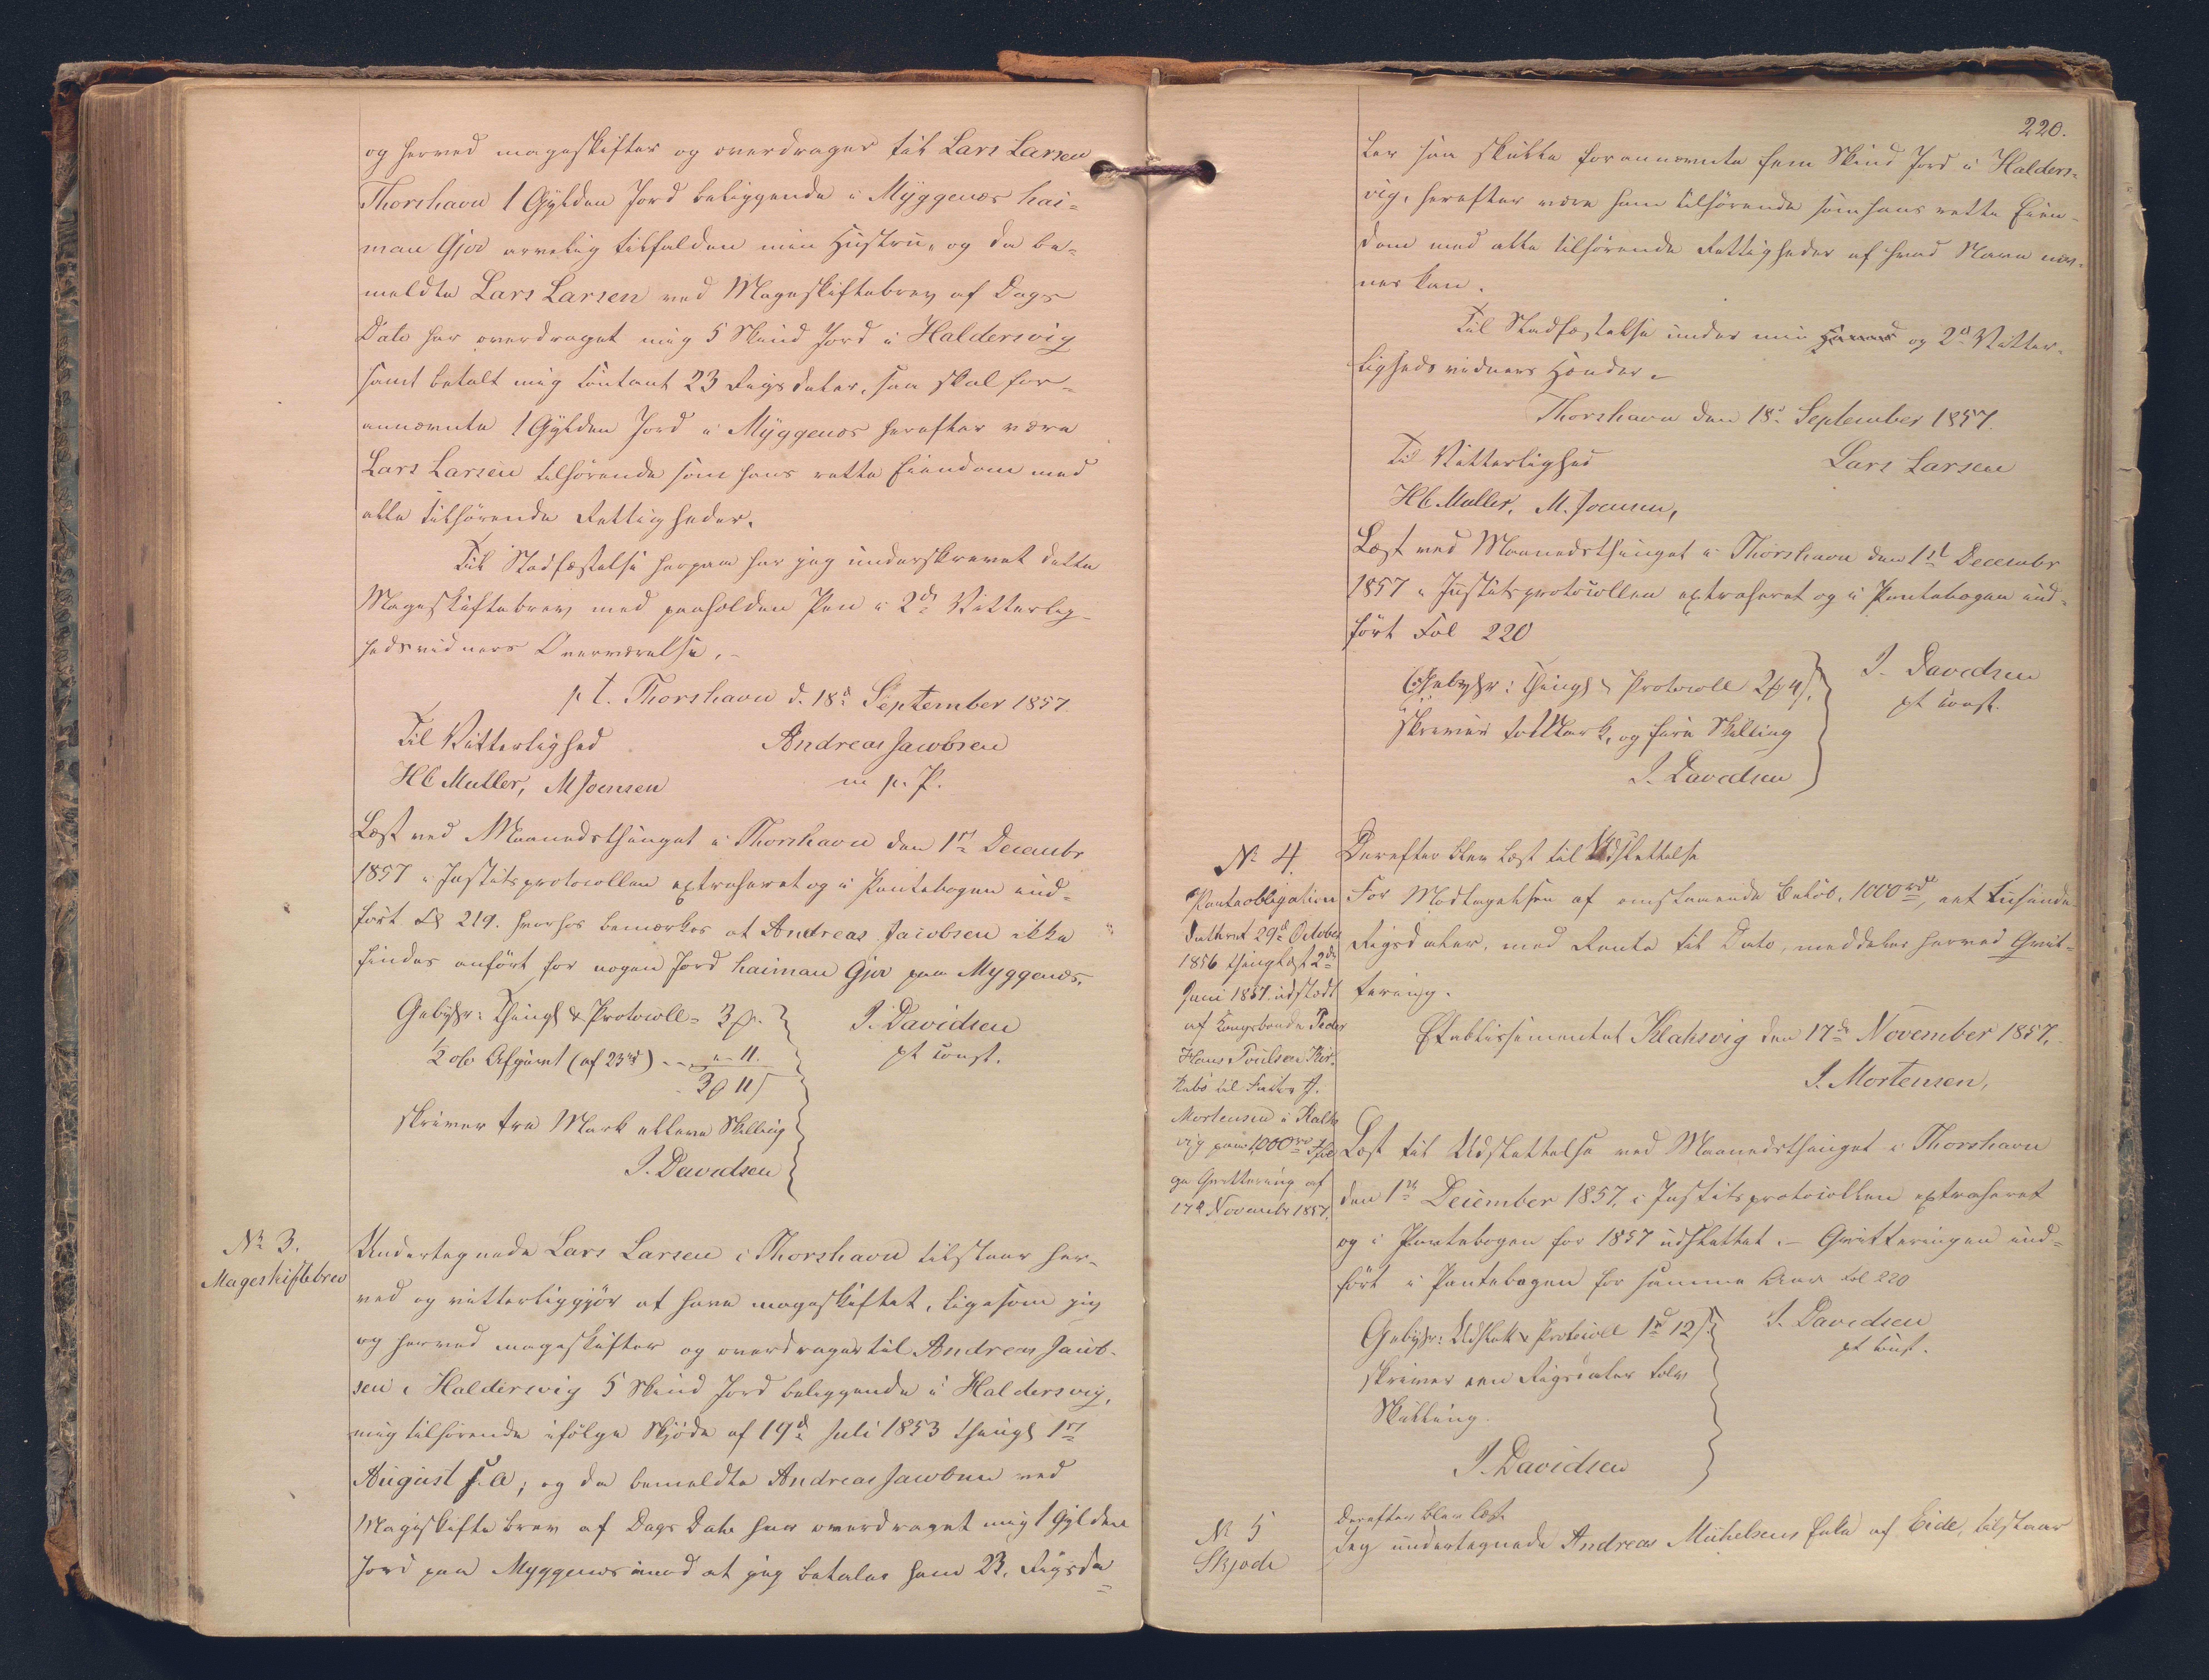 og herved mageskifter og overdrager til Lars Larsen
Thorshavn 1 Gylden Jord beliggende i Myggenæs hai=
man Gjov arvelig tilfalden min Hustru, og da be=
meldte Lars Larsen ved Mageskiftebrev af Dags
Dato har overdraget mig 5 Skind Jord i Haldersvig
samt betalt mig contant 23 Rigsdaler, saa skal for=
annævnte 1 Gylden Jord i Myggenæs herefter være
Lars Larsen tilhørende som hans rette Eiendom med
alle tilhørende Rettigheder.
Til Stadfæstelse herpaa har jeg underskrevet dette
Mageskiftebrev med paaholden Pen i 2de Vitterlig=
hedsvidners Overværelse. -
p t. Thorshavn d. 18d September 1857.
Til Vitterlighed Andreas Jacobsen
HC Muller, M Joensen m p. P.
Læst ved Maanedsthinget i Thorshavn den 1st Decembr
1857 i Justitsprotocollen extraheret og i Pantebogen ind=
ført 219. hvorhos bemærkes at Andreas Jacobsen ikke
findes anført for nogen Jord haiman Gjov paa Myggenæs.
Gebyhr: Thingl & Protocoll = 3
1/2 o/o Afgivt (af 23rd) - - " - 11.
3 11
skriver tre Mark elleve Skilling
J. Davidsen
J. Davidsen
pt const.
No 3.
Mageskiftebrev
Undertegnede Lars Larsen i Thorshavn tilstaar her=
ved og vitterliggjør at have mageskiftet, ligesom jeg
og herved mageskifter og overdrager til Andreas Jacob=
sen i Haldersvig 5 Skind Jord beliggende i Haldersvig,
mig tilhørende ifølge Skjøde af 19d Juli 1853 thingl 1st
August s. A; og da bemeldte Andreas Jacobsen ved
Mageskifte brev af Dags Dato har overdraget mig 1 Gylden
Jord paa Myggenæs imod at jeg betaler ham 23. Rigsda=
220.
ler saa skulle forannævnte fem Skind Jord i Halders=
vig, herefter være ham tilhørende som hans rette Eien=
dom med alle tilhørende Rettigheder af hvad Navn næv=
nes kan.
Til Stadfæstelse under min Haand og 2d Vitter=
lighedsvidners Hænder. -
Thorshavn den 18d September 1857.
Til Vitterlighed Lars Larsen
HC Muller, M. Joensen,
Læst ved Maanedsthinget i Thorshavn den 1st Decembr
1857 i Justitsprotocollen extraheret og i Pantebogen ind=
ført Fol 220
Gebyhr: Thingl & Protocoll 2 4
skriver to Mark, og fire Skilling
J. Davidsen
J. Davidsen
pt const.
No 4.
Panteobligation
dateret 29d October
1856 thinglæst 2d
Juni 1857. udstædt
af Kongsbonde Peder
Hans Poulsen Kir=
kebø til J.
Mortensen i Klaks
vig paa 1000rd Iføl
ge Qvittering af
17d Novembr 1857.
Derefter blev læst til Udslettelse
For Modtagelsen af omstaaende Beløb, 1000rd, eet tusinde
Rigsdaler, med Rente til Dato, meddeles herved Qvit=
tering.
Etablissementet Klaksvig den 17de November 1857.
J. Mortensen,
Læst til Udslettelse ved Maanedsthinget i Thorshavn
den 1st December 1857, i Justitsprotocollen extraheret
og i Pantebogen for 1857 udslettet. - Qvitteringen ind=
ført i Pantebogen for samme Aar Fol 220
Gebyhr: Udslett & Protocoll 1rd 12
skriver een Rigsdaler tolv
Skilling.
J. Davidsen
J. Davidsen
pt const.
No 5
Skjøde
Derefter blev læst
Jeg undertegnede Andreas Michelsens Enke af Eide, tilstaar